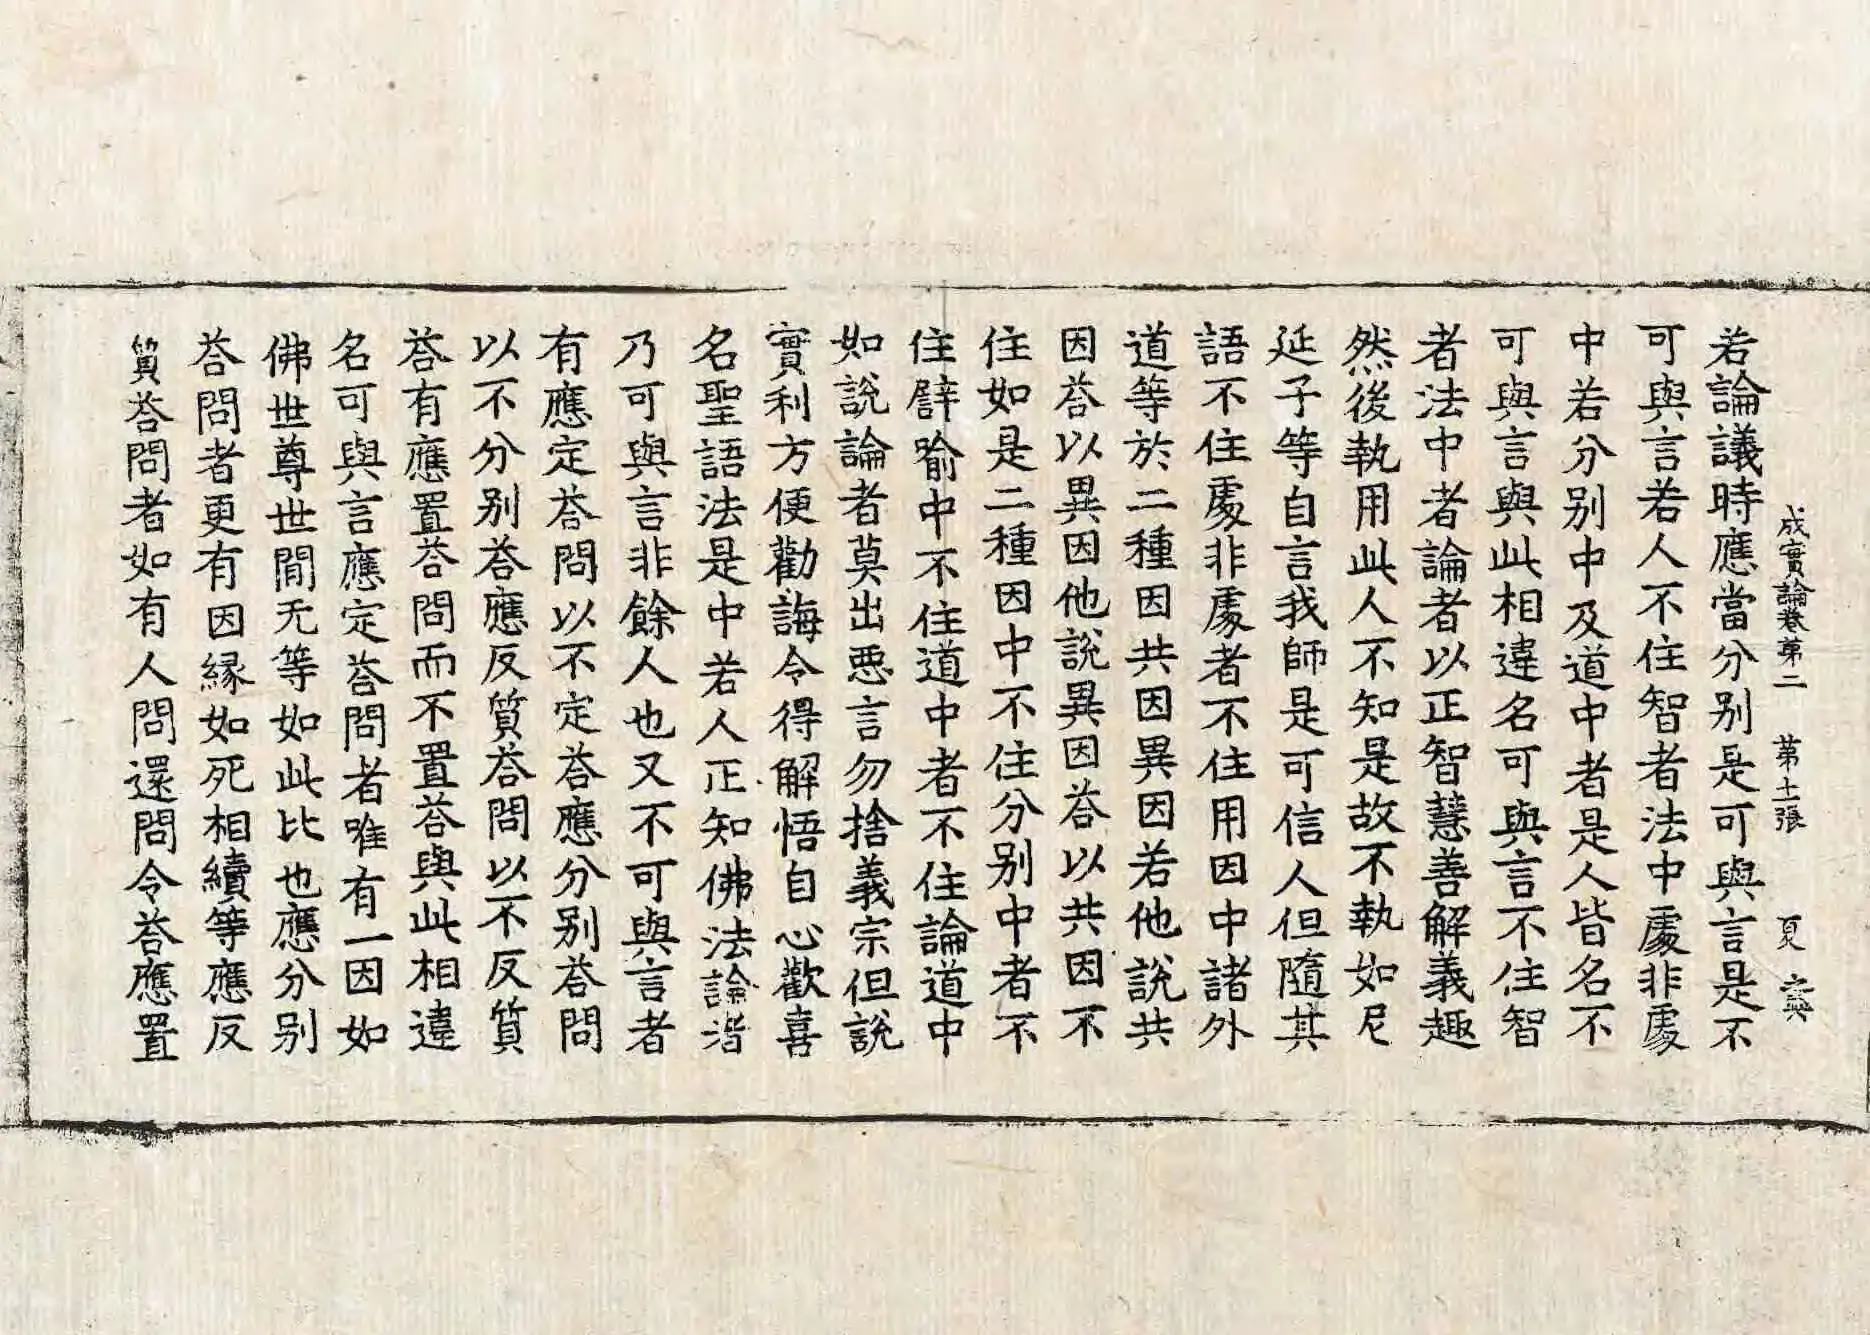 成實論卷第二　第十一張　夏
若論議時應當分別是可與言是不
可與言若人不住智者法中處非處
中若分別中及道中者是人皆名不
可與言與此相違名可與言不住智
者法中者論者以正智慧善解義趣
然後執用此人不知是故不執如尼
延子等自言我師是可信人但隨其
語不住處非處者不住用因中諸外
道等於二種因共因異因若他說共
因荅以異因他說異因荅以共因不
住如是二種因中不住分別中者不
住辟喻中不住道中者不住論道中
如說論者莫出惡言勿捨義宗但說
實利方便勸誨令得解悟自心歡喜
名聖語法是中若人正知佛法論沿
乃可與言非餘人也又不可與言者
有應定荅問以不定荅應分別荅問
以不分別荅應反質荅問以不反質
荅有應置荅問而不置荅與此相違
名可與言應定荅問者唯有一因如
佛世尊世間无等如此比也應分別
荅問者更有因緣如死相續等應反
質荅問者如有人問還問令荅應置